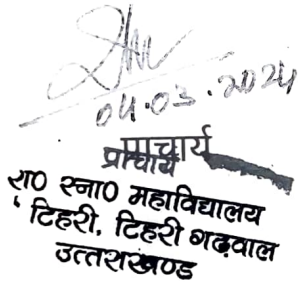 04.03.2024
प्राचार्य
प्राचार्य
रा0 स्ना0 महाविद्यालय
टिहरी, टिहरी गढ़वाल
उत्तराखण्ड